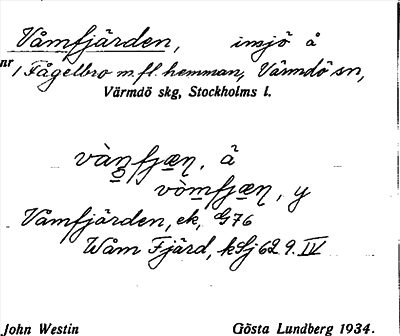 Våmfjärden, insjö å
nr 1 Fågelbro m. fl. hemman, Värmdö sn,
Värmdö skg, Stockholms l.
vàn̥fjæɳ, ä
vòmfjæɳ, y
Våmfjärden, ek, G76
Wåm Fjärd, kSj 62 9. IV
John Westin Gösta Lundberg 1934.